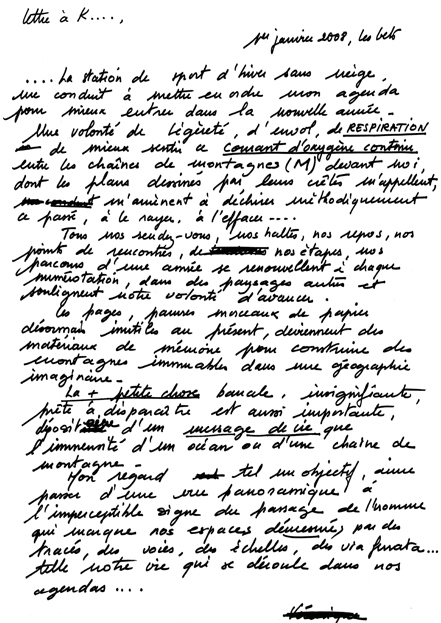 lettre à K....,
1er janvier 2008, les bets
.... La station de sport d'hiver sans neige,
me conduit à mettre en ordre mon agenda
pour mieux entrer dans la nouvelle année -
Une volonté de légèreté, d'envol, de RESPIRATION
- de mieux sentir ce courant d'oxygène continu
entre les chaînes de montagnes (M) devant moi,
dont les plans dessinés par leurs crêtes m'appellent,
m'amènent à déchirer méthodiquement
ce passé, à le rayer, à l'effacer ----
Tous nos rendez-vous, nos haltes, nos repos, nos
points de rencontres, de nos étapes, nos
parcours d'une année se renouvellent à chaque
numérotation, dans des paysages autres et
soulignent notre volonté d'avancer.
Les pages, pauvres morceaux de papier
désormais inutiles au présent, deviennent des
matériaux de mémoire pour construire des
montagnes immuables dans une géographie
imaginaire -
La + petite chose banale, insignifiante,
prête à disparaître est aussi importante,
dépositaire d'un message de vie que
l'immensité d'un océan ou d'une chaîne de
montagne -
Mon regard tel un objectif, aime
passer d'une vue panoramique à
l'imperceptible signe du passage de l'homme
qui marque nos espaces démesurés, par des
tracés, des voies, des échelles, des via ferrata...
telle notre vie qui se déroule dans nos
agendas ....